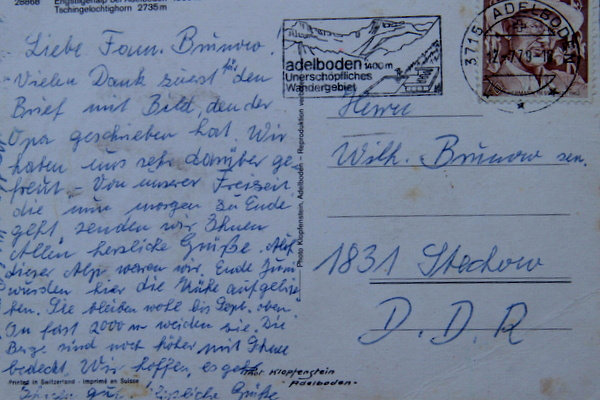 28868 Engstligenalp bei Adelboden
Tschingelochtighorn 2735 m
Liebe Fam. Brunow.
Vielen Dank zuerst für den
Brief mit Bild, den der
Opa geschrieben hat. Wir
haben uns sehr darüber ge
freut - Von unserer Freizeit,
die nun morgen zu Ende
geht senden wir Ihnen
Allen herzliche Grüße. Auf
dieser Alp waren wir. Ende Juni
wurden hier die Kühe aufgetrie
ben. Sie bleiben wohl bis Sept. oben.
In fast 2000 m weiden sie. Die
Berge sind noch höher mit Schnee
bedeckt. Wir hoffen, es geht
Ihnen gut. Herzliche Grüße
Printed in Switzerland - Imprimé en Suisse
Photo Klopfenstein, Adelboden - Reproduktion verb
adelboden 1400 m
Unerschöpfliches
Wandergebiet
3715 ADELBODEN
Herrn
Wilh. Brunow sen.
1831 Stechow
D. D. R
Klopfenstein
- Adelboden -